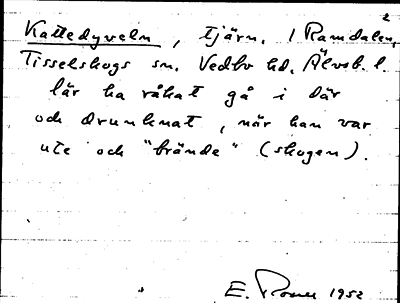 2
Kattedyveln, tjärn. I Ramdalen,
Tisselskogs sn. Vedbo hd. Älvsb. l.
lär ha råkat gå i där
och drunknat, när han var
ute och "brände" (skogen).
E. 1952